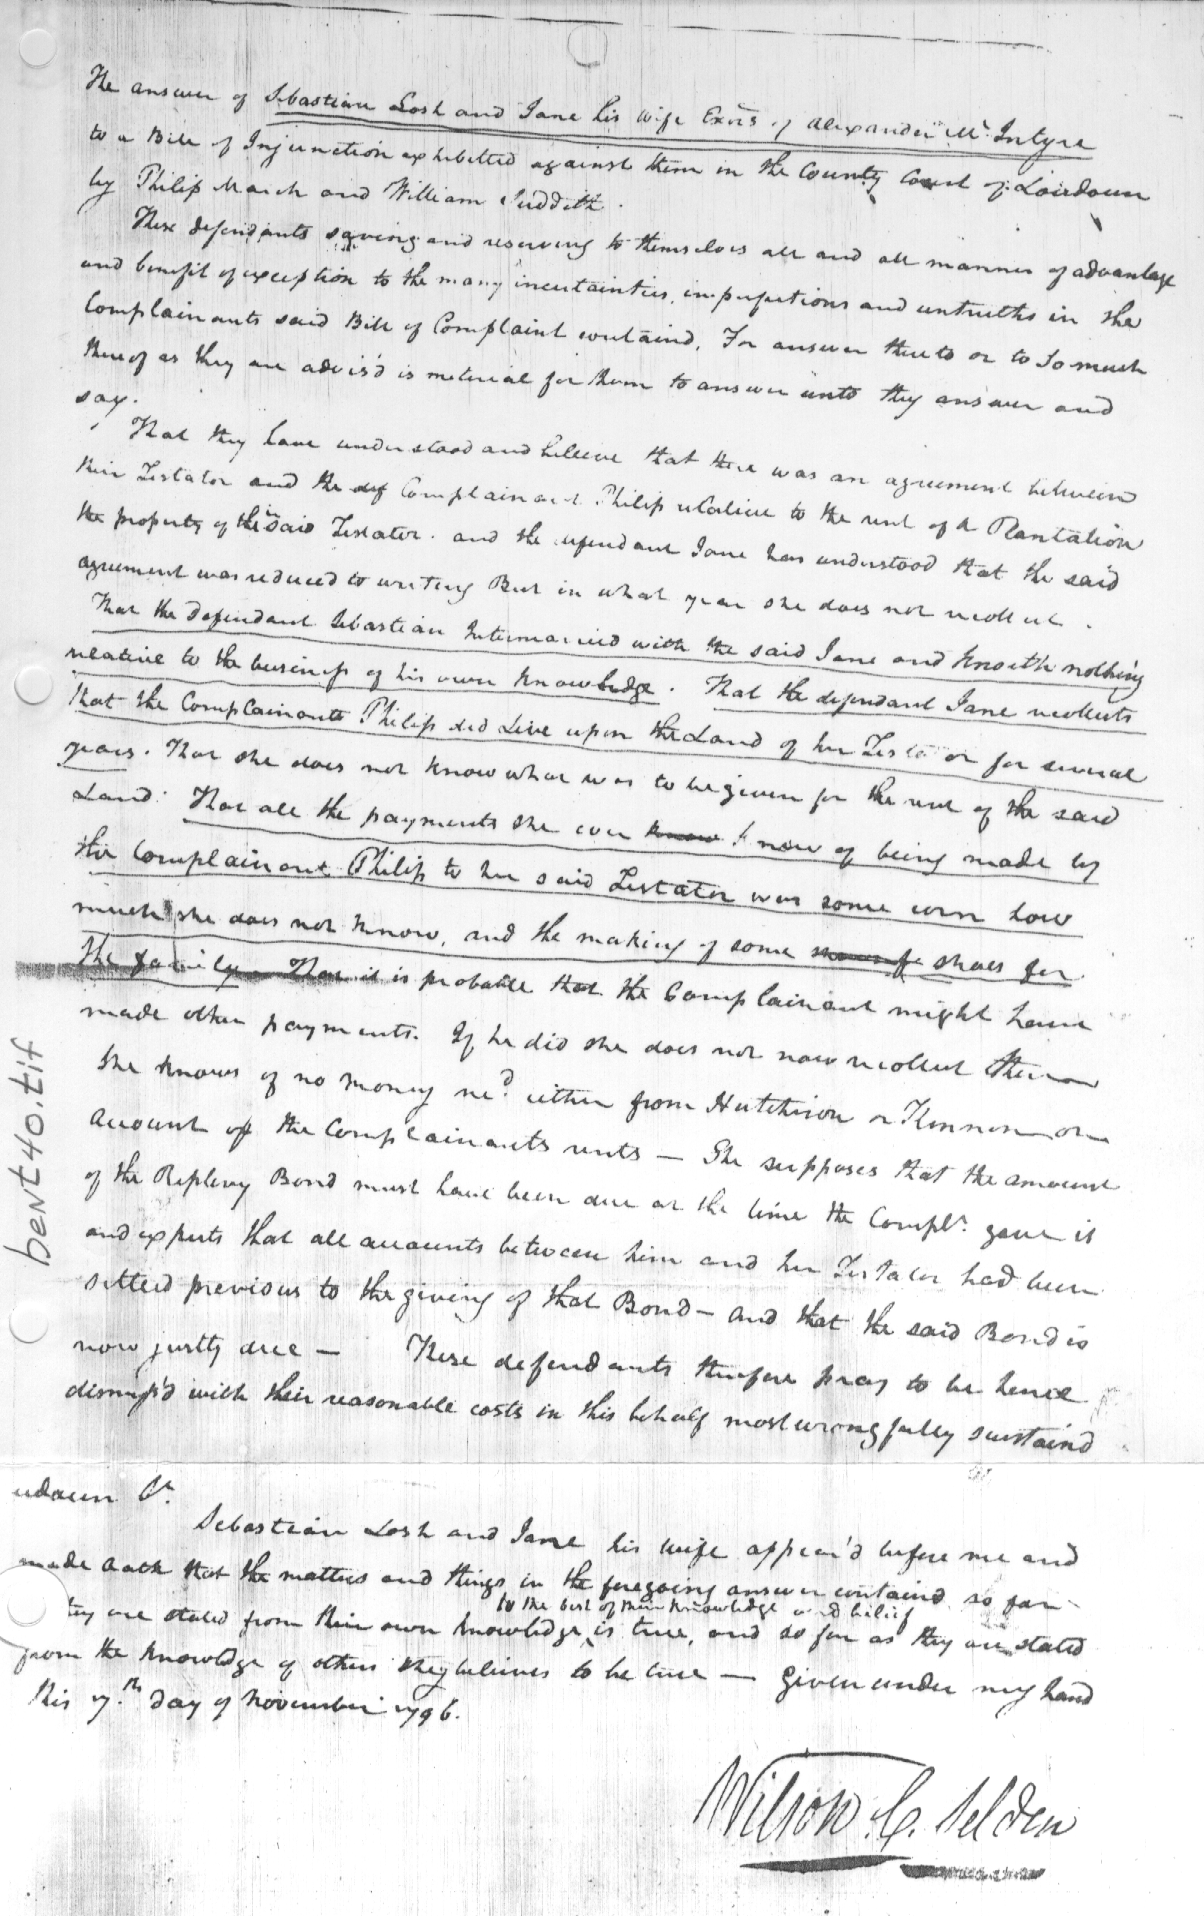 The answer of Sebastian Losh and Jane his wife Exōrs of Alexander Mc.Intyre
to a Bill of Injunction exhibitted against them in the County Court of Loudoun
by Philip March and William Suddith.
These defendants saving and reserving to themselves all and all manner of advantage
and benefit of exception to the many incertainties, imperfections and untruths in the
Complainants said Bill of Complaint containd, For answer thereto or to so much
thereof as they are advis'd is material for them to answer unto they answer and
say.
That they have understood and believe that there was an agreement between
their Testator and the def Complainant Philip relative to the rent of a Plantation
the property of their said Testator. and the defendant Jane has understood that the said
agreement was reduced to writing But in what year she does not recollect.
That the Defendant Sebastian Intermarried with the said Jane and knoweth nothing
relative to the business of his own knowledge. That the defendant Jane recollects
that the Complainants Philip did Live upon the Land of her Testator for several
years. That she does not know what was to be given for the rent of the said
Land. That all the payments she ever know know of being made by
the Complainant Philip to her said Testator was some corn how
much she does not know, and the making of some shoes for
the family. That it is probable that the Complainant might have
made other payments. If he did she does not now recollect them
She knows of no money recd. either from Hutchison or Kennon on
account of the Complainants rents — She supposes that the amount
of the Replevy Bond must have been due at the time the Complt. gave it
and expects that all accounts between him and her Testator had been
settled previous to the giving of that Bond — and that the said Bond is
now justly due — These defendants therefore pray to be hence
dismiss'd with their reasonable costs in this behalf most wrongfully sustaind
udoun Sct.
Sebastian Losh and Jane his wife appear'd before me and
made oath that the matters and things in the foregoing answer containd so far
to the best of their knowledge and belief
they are stated from their own knowledge is true, and so far as they are stated
from the knowledge of others they believes to be true — given under my hand
this 7.th day of November 1796.
Wilson. C. Selden
bent40.tif